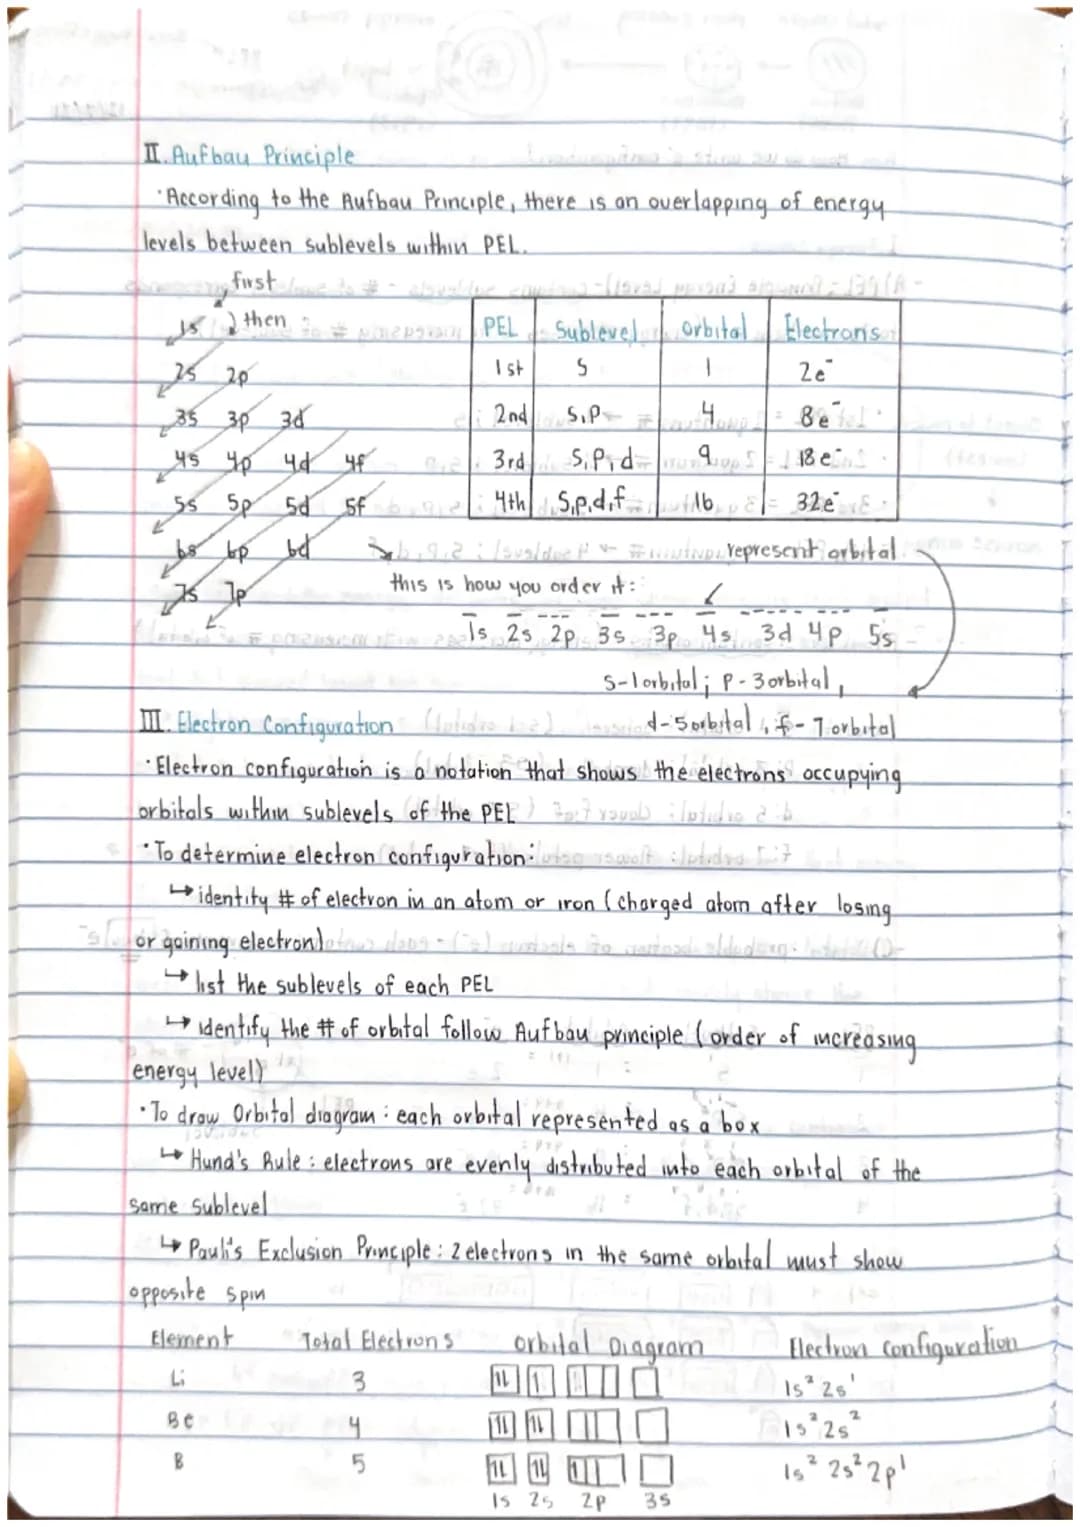 II. Aufbau Principle
· According to the Aufbau Principle, there is an overlapping of energy
levels between sublevels within PEL.
first
1s then
2s 2p
3s 3p 3d
4s 4p 4d 4f
5s 5p 5d 5f
6s 6p 6d
7s 7p
PEL Sublevel orbital Electrons
1st S 1 2e⁻
2nd S,P 4 8e⁻
3rd S,P,d 9 18e⁻
4th S,P,d,f 16 32e⁻
represent orbital
this is how you order it:
1s 2s 2p 3s 3p 4s 3d 4p 5s
S-1orbital; P-3orbital,
d-5orbital, f-7orbital
III. Electron Configuration
· Electron configuration is a notation that shows the electrons occupying
orbitals within sublevels of the PEL
· To determine electron configuration:
↳ identity # of electron in an atom or iron (charged atom after losing
or gaining electron)
↳ list the sublevels of each PEL
↳ identify the # of orbital follow Aufbau principle (order of increasing
energy level)
· To draw Orbital diagram: each orbital represented as a box
↳ Hund's Rule: electrons are evenly distributed into each orbital of the
same sublevel
↳ Pauli's Exclusion Principle: 2 electrons in the same orbital must show
opposite spin
Element Total Electrons orbital Diagram Electron Configuration
Li 3 1s² 2s¹
Be 4 1s² 2s²
B 5 1s² 2s² 2p¹
1s 2s 2p 3s